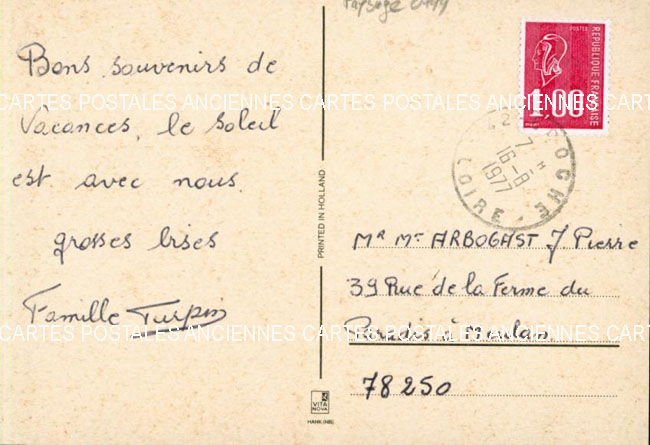 Paysage
Bons souvenirs de
Vacances, le soleil
est avec nous.
grosses bises
Famille Turpin
PRINTED IN HOLLAND
VITA
NOVA
HANK (NB)
POSTES
REPUBLIQUE FRANÇAISE
1,00
OGNE
16-6
1977
LOIRE
Mr Mme ARBOGAST J Pierre
39 Rue de la Ferme du
Paradis à Meulan
78250
CARTES POSTALES ANCIENNES CARTES POSTALES ANCIENNES CARTES
CARTES POSTALES ANCIENNES CARTES POSTALES ANCIENNES CARTES